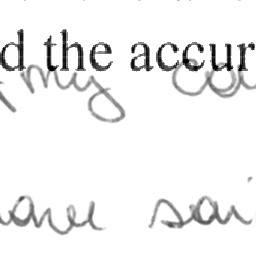 d the accur
my co
have sai